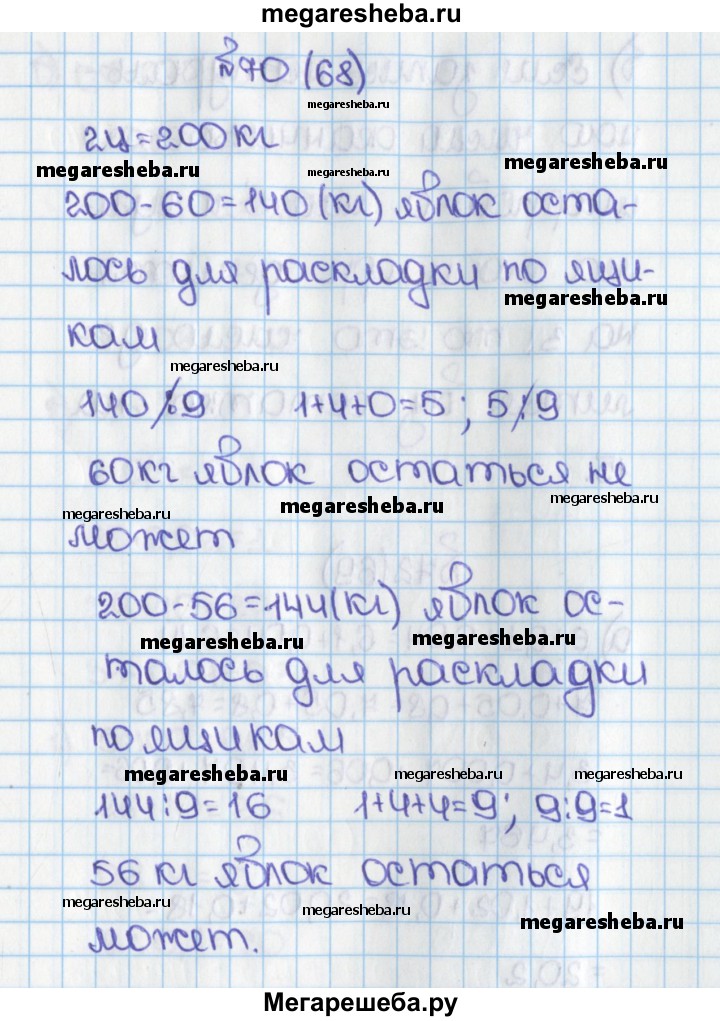 megaresheba.ru
№70 (68)
megaresheba.ru
2ц=200кг
megaresheba.ru megaresheba.ru megaresheba.ru
200-60=140(кг) яблок оста-
лось для раскладки по ящи-
megaresheba.ru
кам
megaresheba.ru
140 ⋮̸ 9 1+4+0=5; 5 ⋮̸ 9
60кг яблок остаться не
megaresheba.ru megaresheba.ru megaresheba.ru
может
200-56=144(кг) яблок ос-
megaresheba.ru megaresheba.ru
талось для раскладки
по ящикам
megaresheba.ru megaresheba.ru megaresheba.ru
144:9=16 1+4+4=9; 9:9=1
56 кг яблок остаться
megaresheba.ru megaresheba.ru megaresheba.ru
может.
Мегарешеба.ру